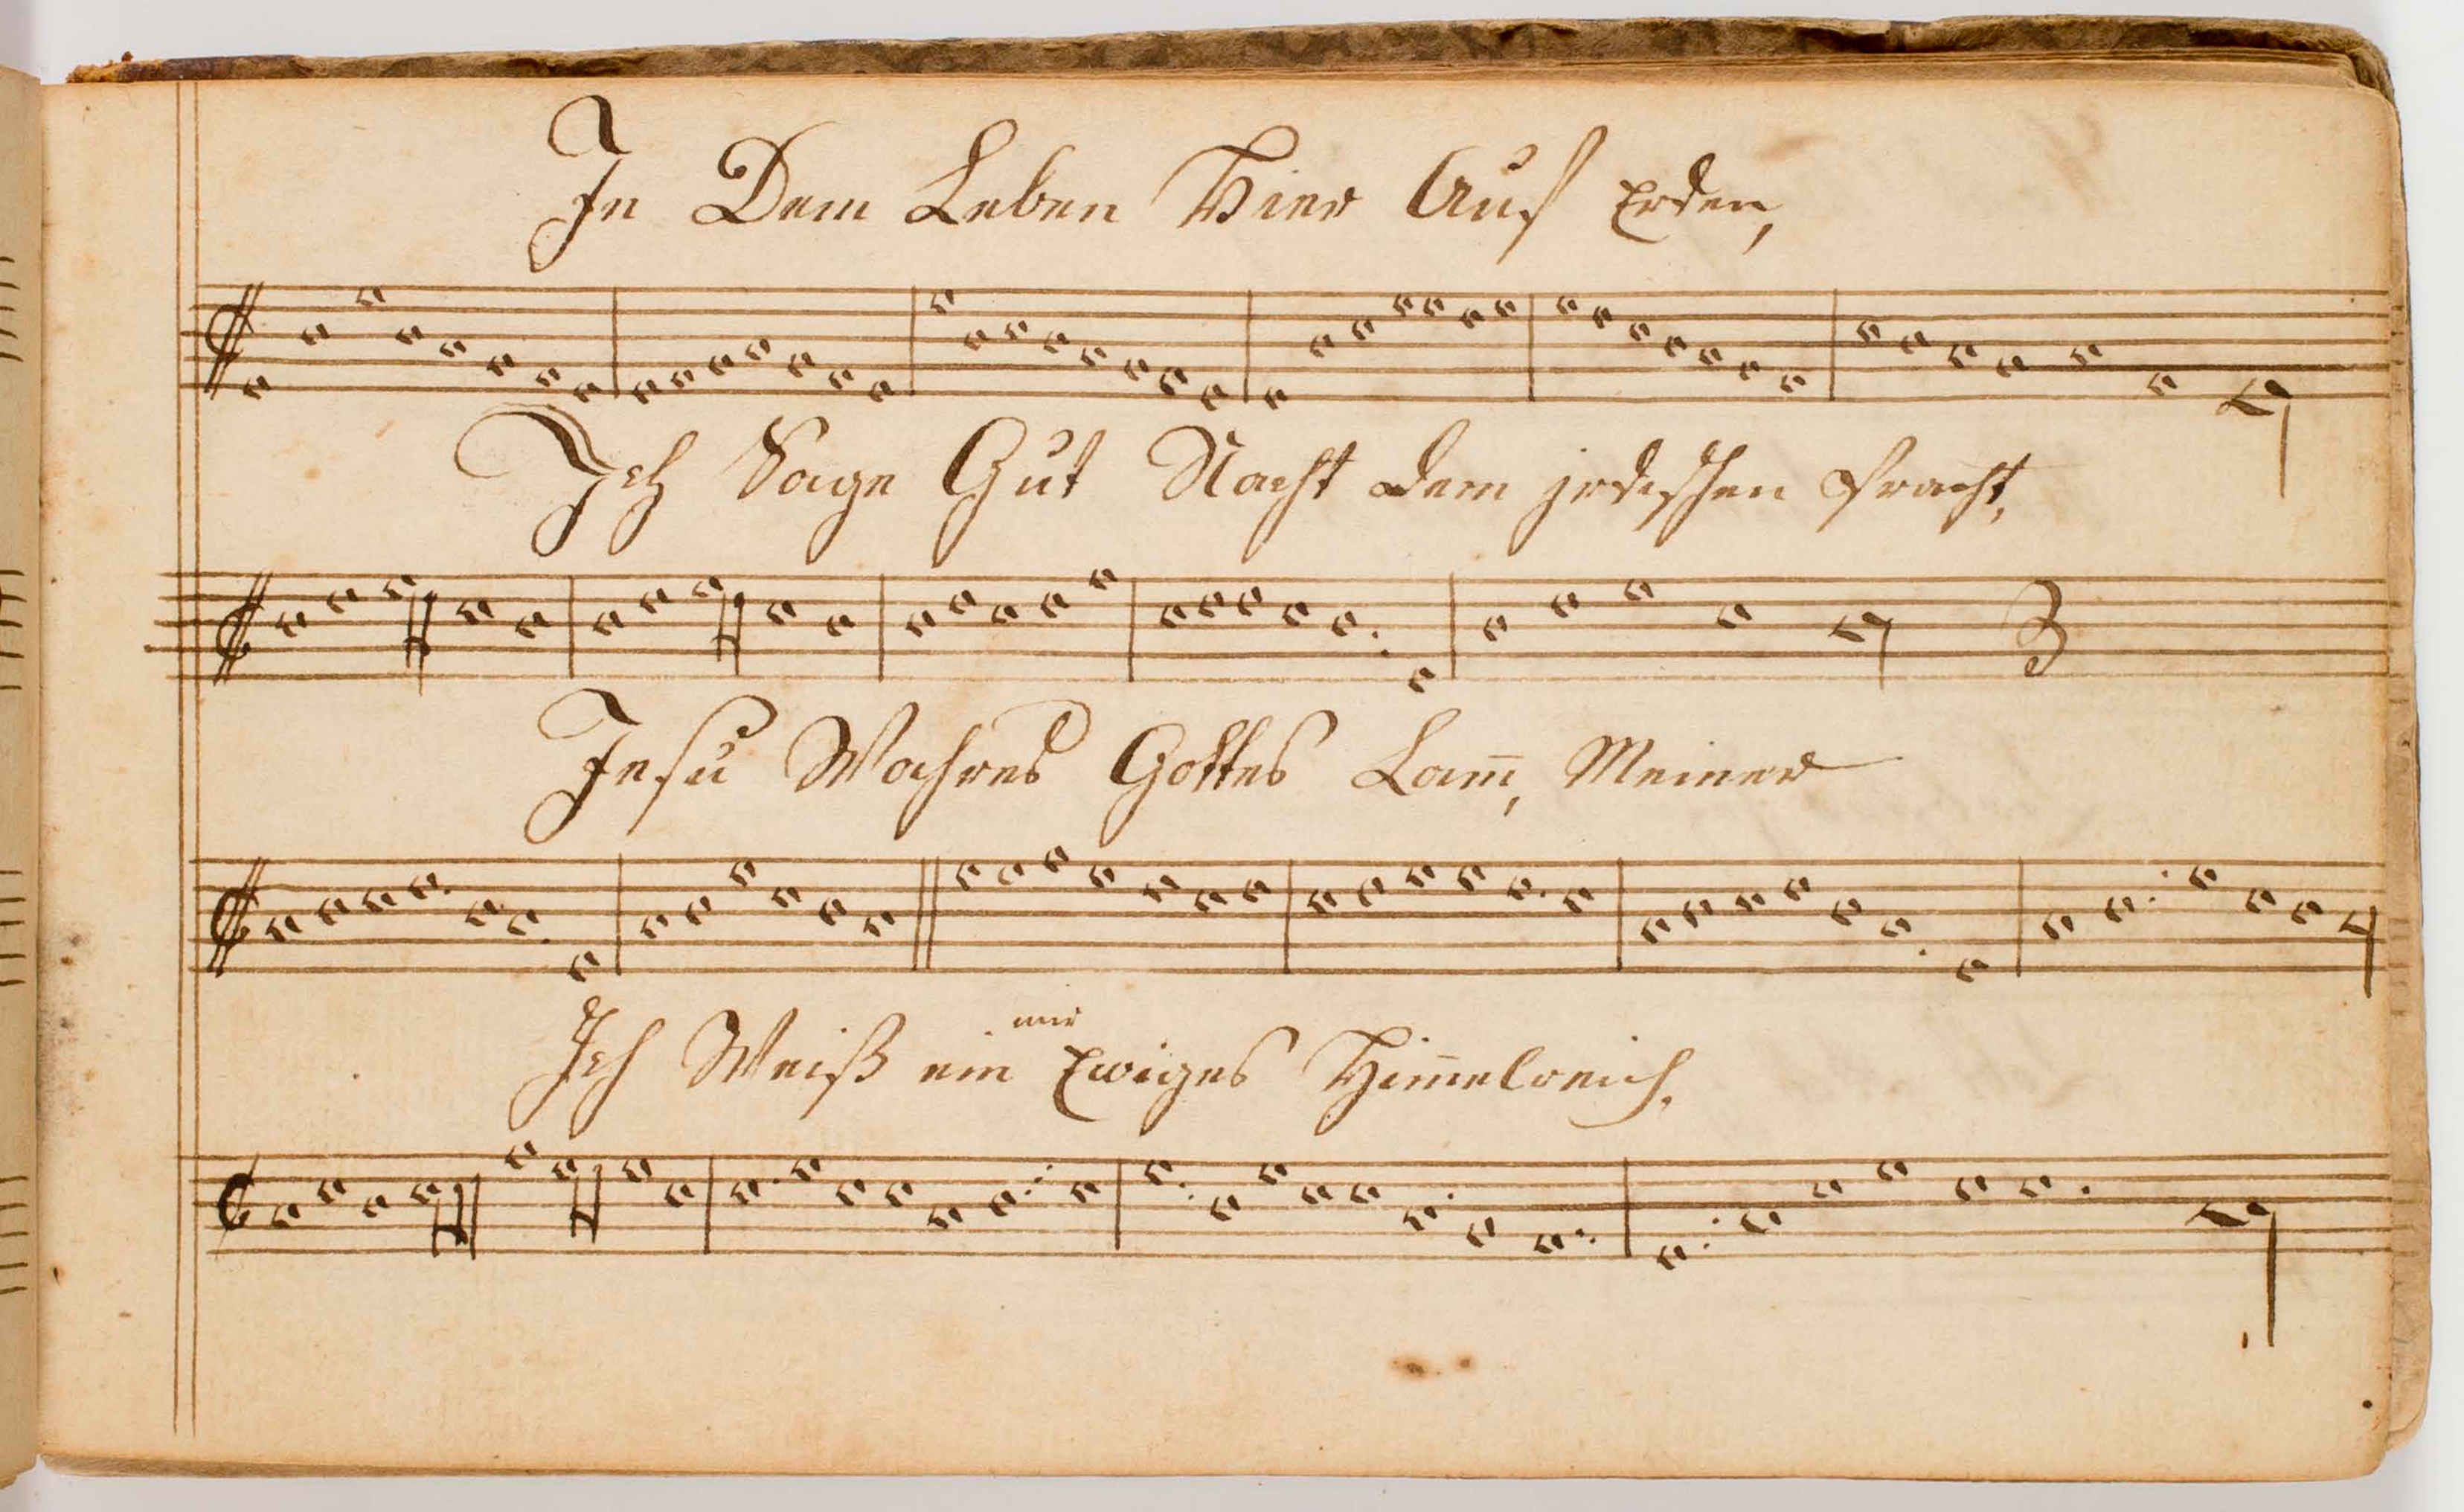 In Dem Leben Hier Auf Erden,
Ich Sage Gut Nacht dem jrdischen Pracht,
Jesu Wahres Gottes Lam̅, Meiner
mir
Ich Weiß ein Ewiges Him̅elreich,